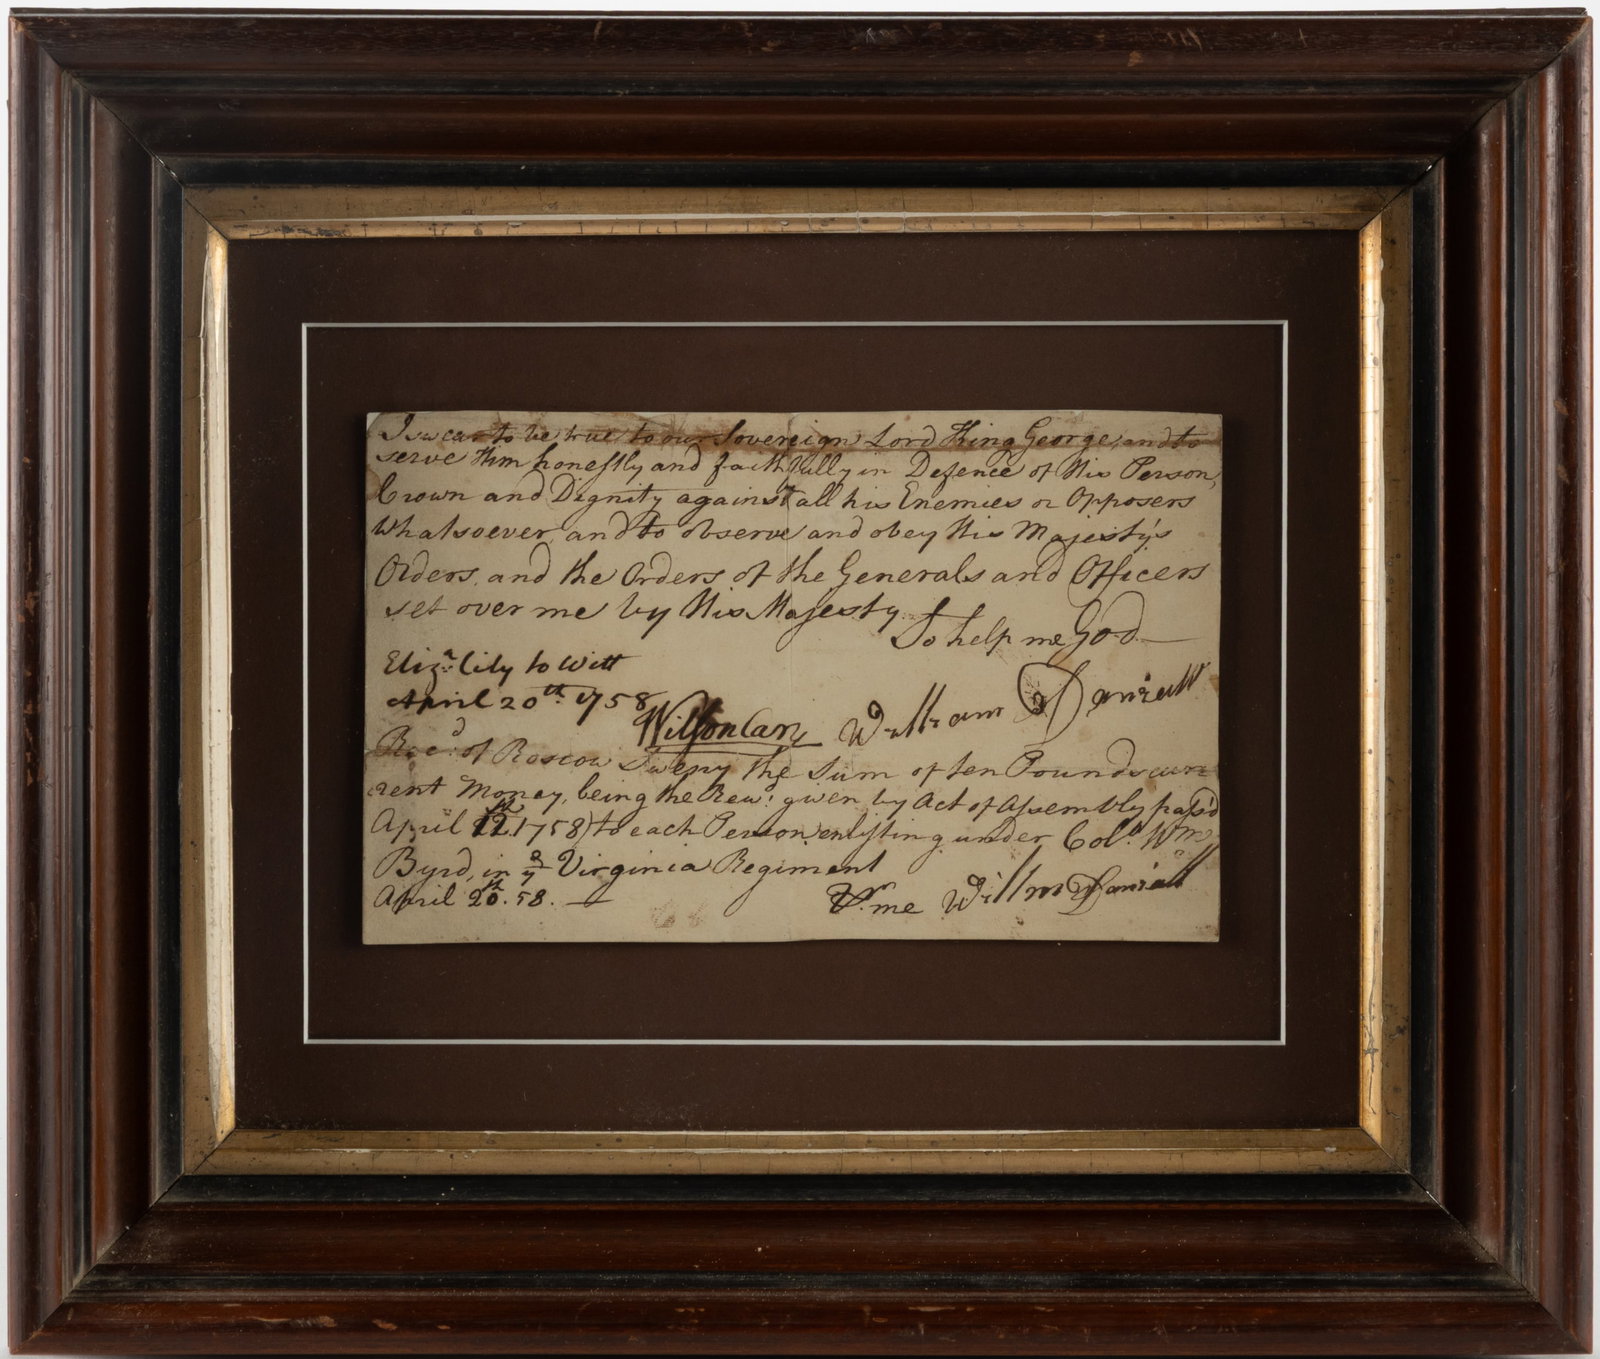 I swear to be true to our Sovereign Lord King George, and to
serve Him honestly and faithfully in Defence of His Person,
Crown and Dignity against all his Enemies or Opposers
Whatsoever, and to observe and obey His Majesty's
Orders, and the Orders of the Generals and Officers
set over me by His Majesty.
So help me God
Eliz.a City to Witt
April 20th. 1758
Wilson Cary William Daniell
Rec'd. of Roscow Sweny the Sum of ten Pounds cur
rent Money, being the Rew'd. given by Act of Assembly pass'd
April 12th. 1758) to each Person enlisting under Colo. Wm.
Byrd, in ye 2 Virginia Regiment
April 20th. 58.
Pr. me Willm Daniell